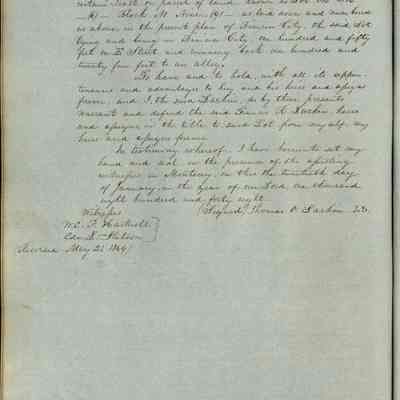 certain Lot or parcel of land known as Lot
Block M as laid down and numbered
as above in the present plan of Benicia City the said Lot
lying and being in Benicia City one hundred and fifty
feet on E Street and running back one hundred and
twenty five feet to an alley.
To have and to hold, with all its appur-
tenances and advantages to him and his heirs and assigns
forever, and I, the said Larkin, do by these presents
warrant and defend the said Larkin, heirs
and assigns in the title to said Lot from myself, my
heirs and assigns forever.
In testimony whereof, I have hereunto set my
hand and seal in the presence of the
witnesses in Monterey, on this the twentieth day
of January in the year of our Lord, one thousand
eight hundred and forty eight
Witnesses (Signed) Thomas O. Larkin
W. E. P. Hartnell
Received May 21